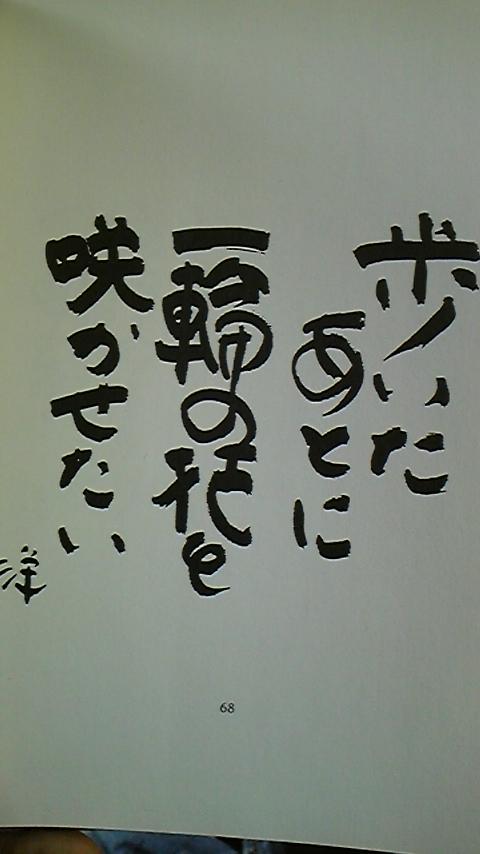 歩いた
あとに
一輪の花を
咲かせたい
洋
68